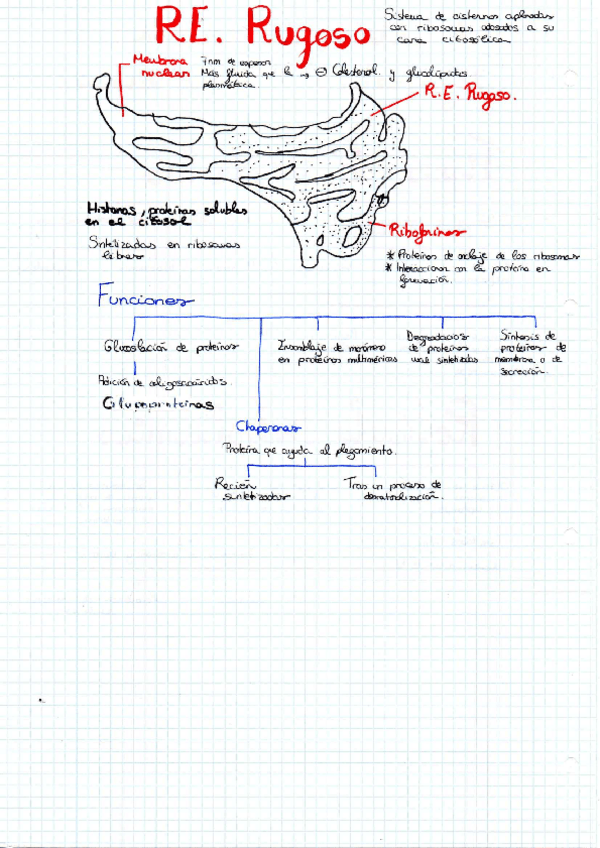 R.E. Rugoso
Sistema de cisternas aplanadas
con ribosomas adosados a su
cara citosólica
Membrana
nuclear
7nm de espesor
Más fluida que la → ⊖ Colesterol y glucolípidos
plasmática.
R.E. Rugoso.
Histonas, proteínas solubles
en el citosol
Sintetizadas en ribosomas
libres
Riboforinas
* Proteínas de anclaje de los ribosomas
* Interaccionan con la proteína en
formación.
Funciones
Glucosilación de proteínas
Ensamblaje de monómeros
en proteínas multiméricas
Degradación
de proteínas
mal sintetizadas
Síntesis de
proteínas de
membrana o de
secreción.
Adición de oligosacáridos
Glucoproteínas
Chaperonas
Proteína que ayuda al plegamiento.
Recién
sintetizadas
Tras un proceso de
desnaturalización.